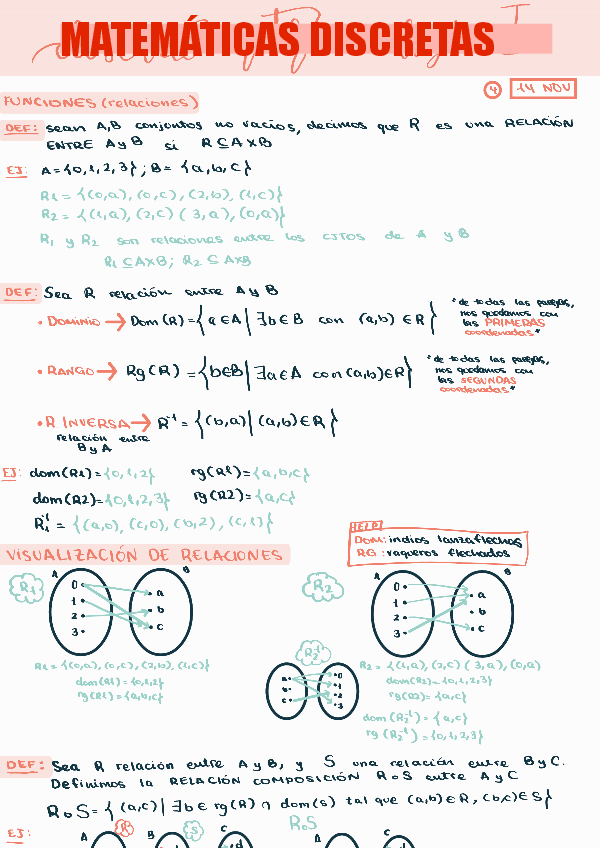 MATEMÁTICAS DISCRETAS
4 14 NOV
FUNCIONES (relaciones)
DEF: sean A,B conjuntos no vacíos, decimos que R es una RELACIÓN
ENTRE A y B si R⊆AxB
EJ: A={0,1,2,3}; B={a,b,c}
R1={(0,a), (0,c), (2,b), (1,c)}
R2={(1,a), (2,c) (3,a), (0,a)}
R1 y R2 son relaciones entre los CJTOS de A y B
R1⊆AxB; R2⊆AxB
DEF: Sea R relación entre A y B
• DOMINIO → Dom(R)={a∈A | ∃b∈B con (a,b)∈R}
*de todas las parejas,
nos quedamos con
las PRIMERAS
coordenadas*
• RANGO → Rg(R)={b∈B | ∃a∈A con (a,b)∈R}
*de todas las parejas,
nos quedamos con
las SEGUNDAS
coordenadas*
• R INVERSA → R⁻¹={(b,a) | (a,b)∈R}
relación entre
B y A
EJ: dom(R1)={0,1,2} rg(R1)={a,b,c}
dom(R2)={0,1,2,3} rg(R2)={a,c}
R1⁻¹={(a,0), (c,0), (b,2), (c,1)}
HELP
DOM: indios lanzaflechas
RG: vaqueros flechados
VISUALIZACIÓN DE RELACIONES
R1 A B
0 1 2 3
a b c
R1={(0,a), (0,c), (2,b), (1,c)}
dom(R1)={0,1,2}
rg(R1)={a,b,c}
R2 A B
0 1 2 3
a b c
R2={(1,a), (2,c) (3,a), (0,a)
dom(R2)={0,1,2,3}
rg(R2)={a,c}
R2⁻¹
a b c
0 1 2 3
dom(R2⁻¹)={a,c}
rg(R2⁻¹)={0,1,2,3}
DEF: Sea R relación entre A y B, y S una relación entre B y C.
Definimos la RELACIÓN COMPOSICIÓN R∘S entre A y C
R∘S={(a,c) | ∃b∈rg(R)∩dom(S) tal que (a,b)∈R, (b,c)∈S}
EJ: A R B S C R∘S A C
d